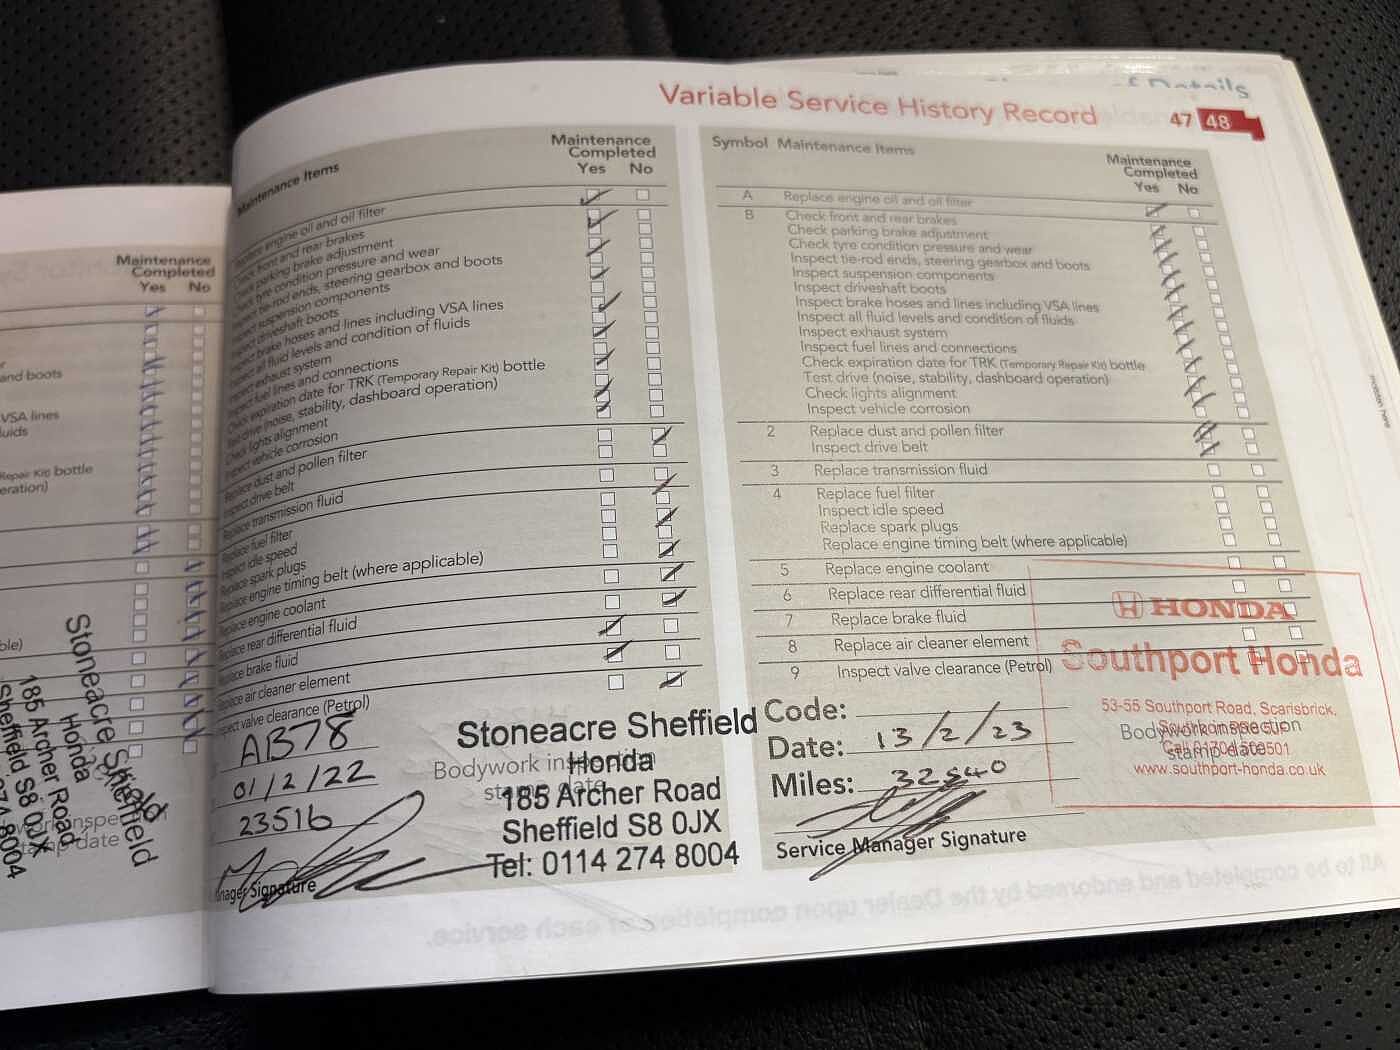 Variable Service History Record
47 48
Maintenance
Completed
Yes No
and boots
VSA lines
Repair Kit) bottle
Stoneacre Sheffield
Honda
185 Archer Road
Sheffield S8 0JX
Maintenance Items
Maintenance
Completed
Yes No
engine oil and oil filter
front and rear brakes
parking brake adjustment
tyre condition pressure and wear
tie-rod ends, steering gearbox and boots
suspension components
driveshaft boots
brake hoses and lines including VSA lines
all fluid levels and condition of fluids
exhaust system
fuel lines and connections
expiration date for TRK (Temporary Repair Kit) bottle
drive (noise, stability, dashboard operation)
lights alignment
vehicle corrosion
dust and pollen filter
drive belt
transmission fluid
fuel filter
idle speed
spark plugs
Replace engine timing belt (where applicable)
engine coolant
rear differential fluid
brake fluid
air cleaner element
valve clearance (Petrol)
AB78
01/2/22
23516
Signature
Stoneacre Sheffield
Honda
Bodywork inspection
stamp date
185 Archer Road
Sheffield S8 0JX
Tel: 0114 274 8004
Symbol Maintenance Items
Maintenance
Completed
Yes No
A Replace engine oil and oil filter
B Check front and rear brakes
Check parking brake adjustment
Check tyre condition pressure and wear
Inspect tie-rod ends, steering gearbox and boots
Inspect suspension components
Inspect driveshaft boots
Inspect brake hoses and lines including VSA lines
Inspect all fluid levels and condition of fluids
Inspect exhaust system
Inspect fuel lines and connections
Check expiration date for TRK (Temporary Repair Kit) bottle
Test drive (noise, stability, dashboard operation)
Check lights alignment
Inspect vehicle corrosion
2 Replace dust and pollen filter
Inspect drive belt
3 Replace transmission fluid
4 Replace fuel filter
Inspect idle speed
Replace spark plugs
Replace engine timing belt (where applicable)
5 Replace engine coolant
6 Replace rear differential fluid
7 Replace brake fluid
8 Replace air cleaner element
9 Inspect valve clearance (Petrol)
HONDA
Southport Honda
53-55 Southport Road, Scarisbrick,
Bodywork inspection
stamp date
www.southport-honda.co.uk
Code:
Date: 13/2/23
Miles: 32540
Service Manager Signature